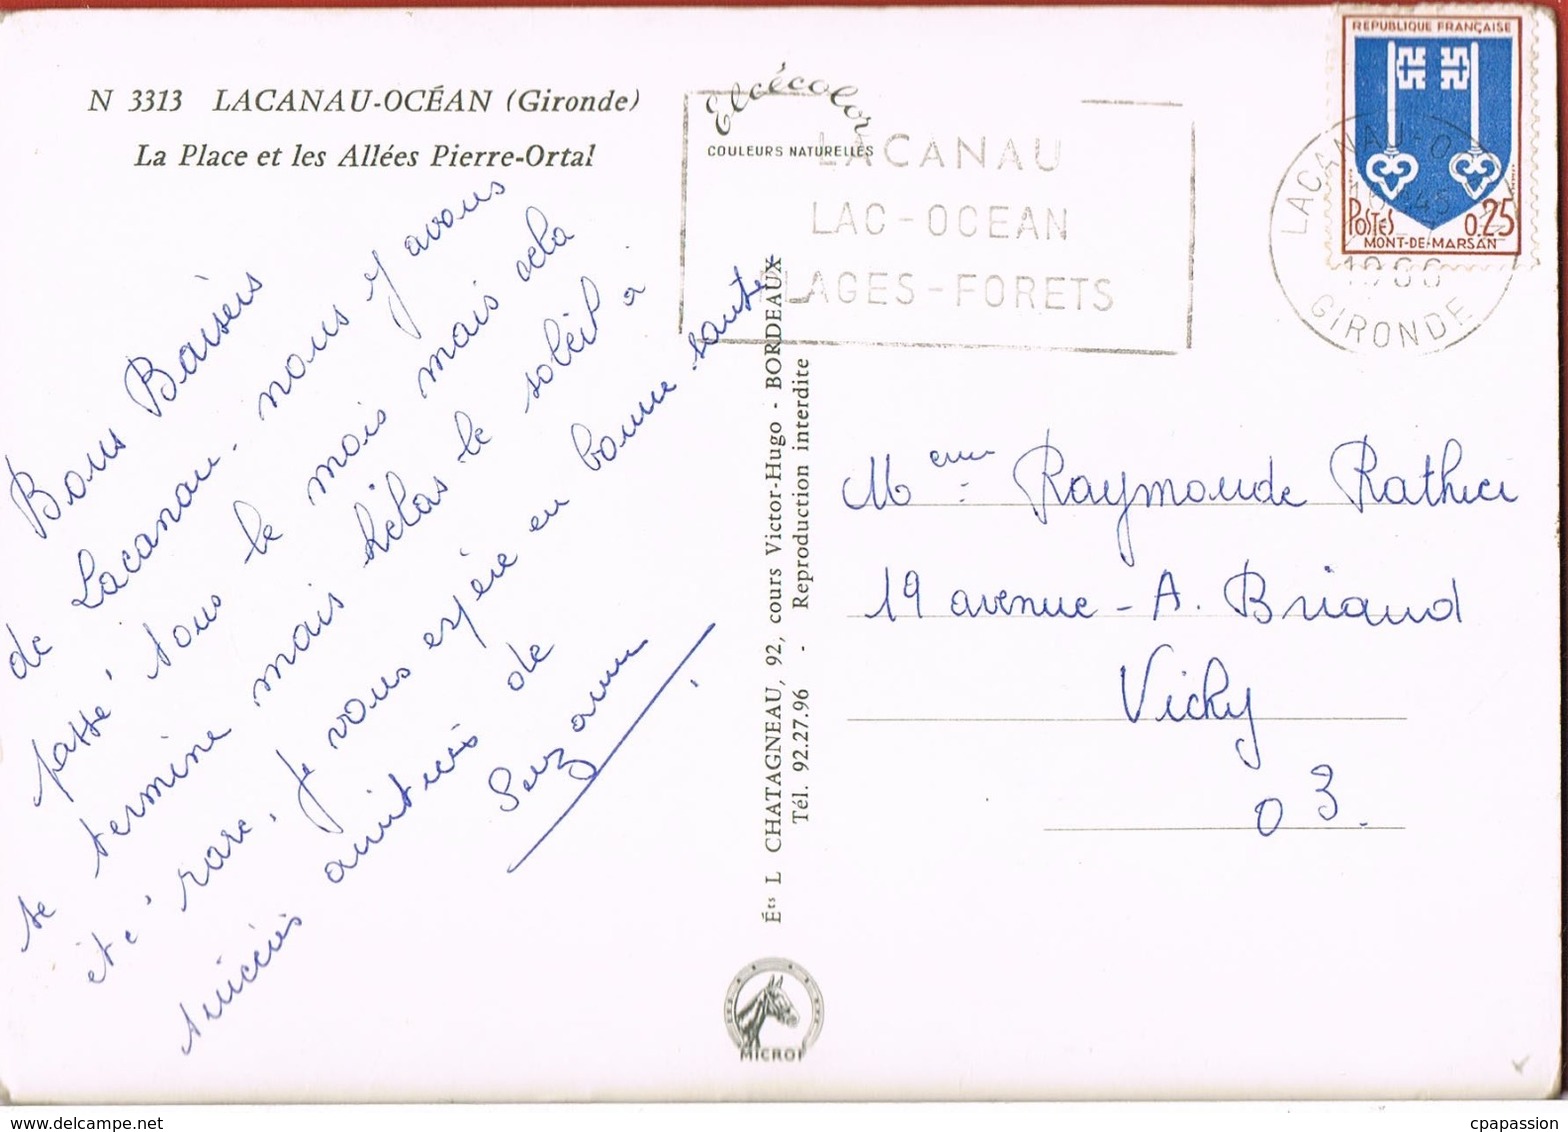 N 3313 LACANAU-OCÉAN (Gironde)
La Place et les Allées Pierre-Ortal
Elcécolor
COULEURS NATURELLES
LACANAU
LAC-OCEAN
PLAGES-FORETS
REPUBLIQUE FRANÇAISE
POSTES 0.25
MONT-DE-MARSAN
LACANAU-O
1966
GIRONDE
Bons Baisers
de Lacanau. nous y avons
passé tous le mois mais cela
se termine mais hélas le soleil a
été rare, je vous espère en bonne santé
sincères amitiés de
Suzanne
Éts L CHATAGNEAU, 92, cours Victor-Hugo - BORDEAUX
Tél. 92.27.96 - Reproduction interdite
Meme Raymonde
19 avenue - A. Briand
Vichy
03.
MICROF
www.delcampe.net
cpapassion